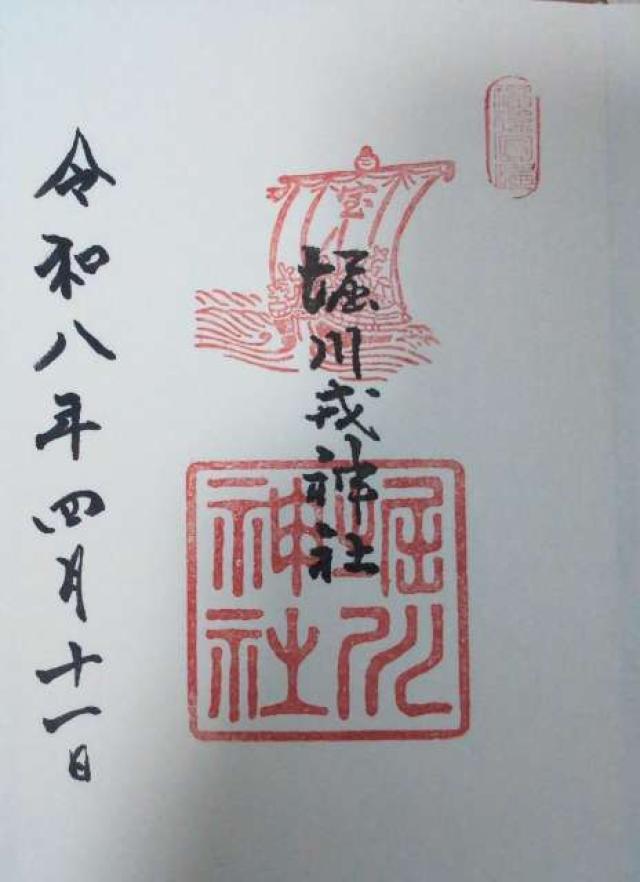 宝
堀川戎神社
堀川
神社
令和八年四月十一日